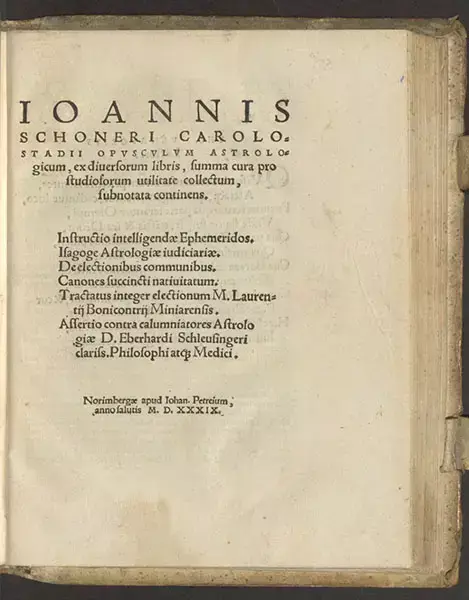 IOANNIS
SCHONERI CAROLO-
STADII OPVSCVLVM ASTROLO-
gicum, ex diuersorum libris, summa cura pro
studiosorum utilitate collectum,
subnotata continens.
Instructio intelligendæ Ephemeridos.
Isagoge Astrologiæ iudiciariæ.
De electionibus communibus.
Canones succincti natiuitatum.
Tractatus integer electionum M. Lauren-
tij Bonicontrij Miniarensis.
Assertio contra calumniatores Astrolo
giæ D. Eberhardi Schleusingeri
clariss. Philosophi atq; Medici.
Norimbergæ apud Iohan. Petreium,
anno salutis M. D. XXXIX.